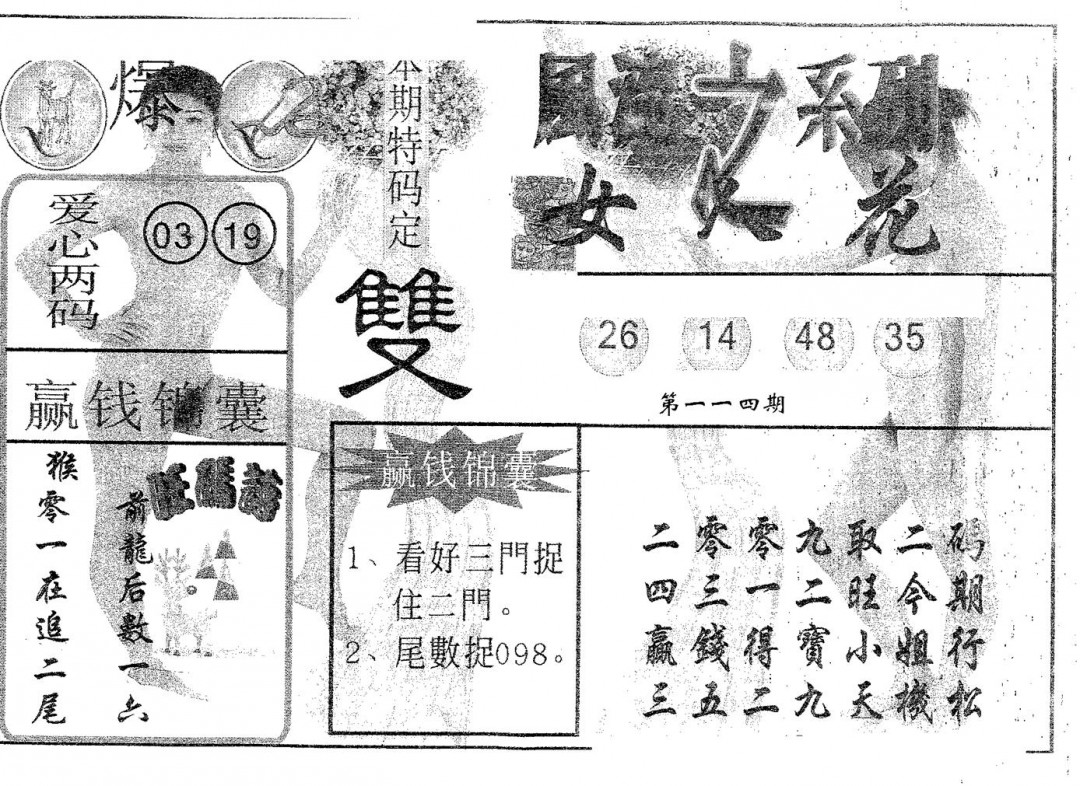 本期特码定
雙
系列
女人花
爱心两码
03 19
26 14 48 35
第一一四期
赢钱锦囊
前龍后数一六
猴零一在追二尾
赢钱锦囊
1、看好三門捉
住二門。
2、尾數捉098。
二零零九取二码
四三一二旺今期
赢錢得寶小姐行
三五二九天機松